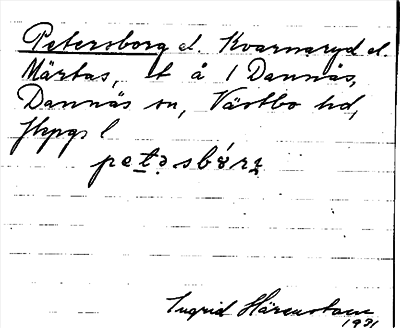 Petersborg el. Kvarnaryd el.
Märtas, lt å 1 Dannäs,
Dannäs sn, Västbo hd,
Jkpgs l
petəsbórʒ
Ingrid Härenstam
1931